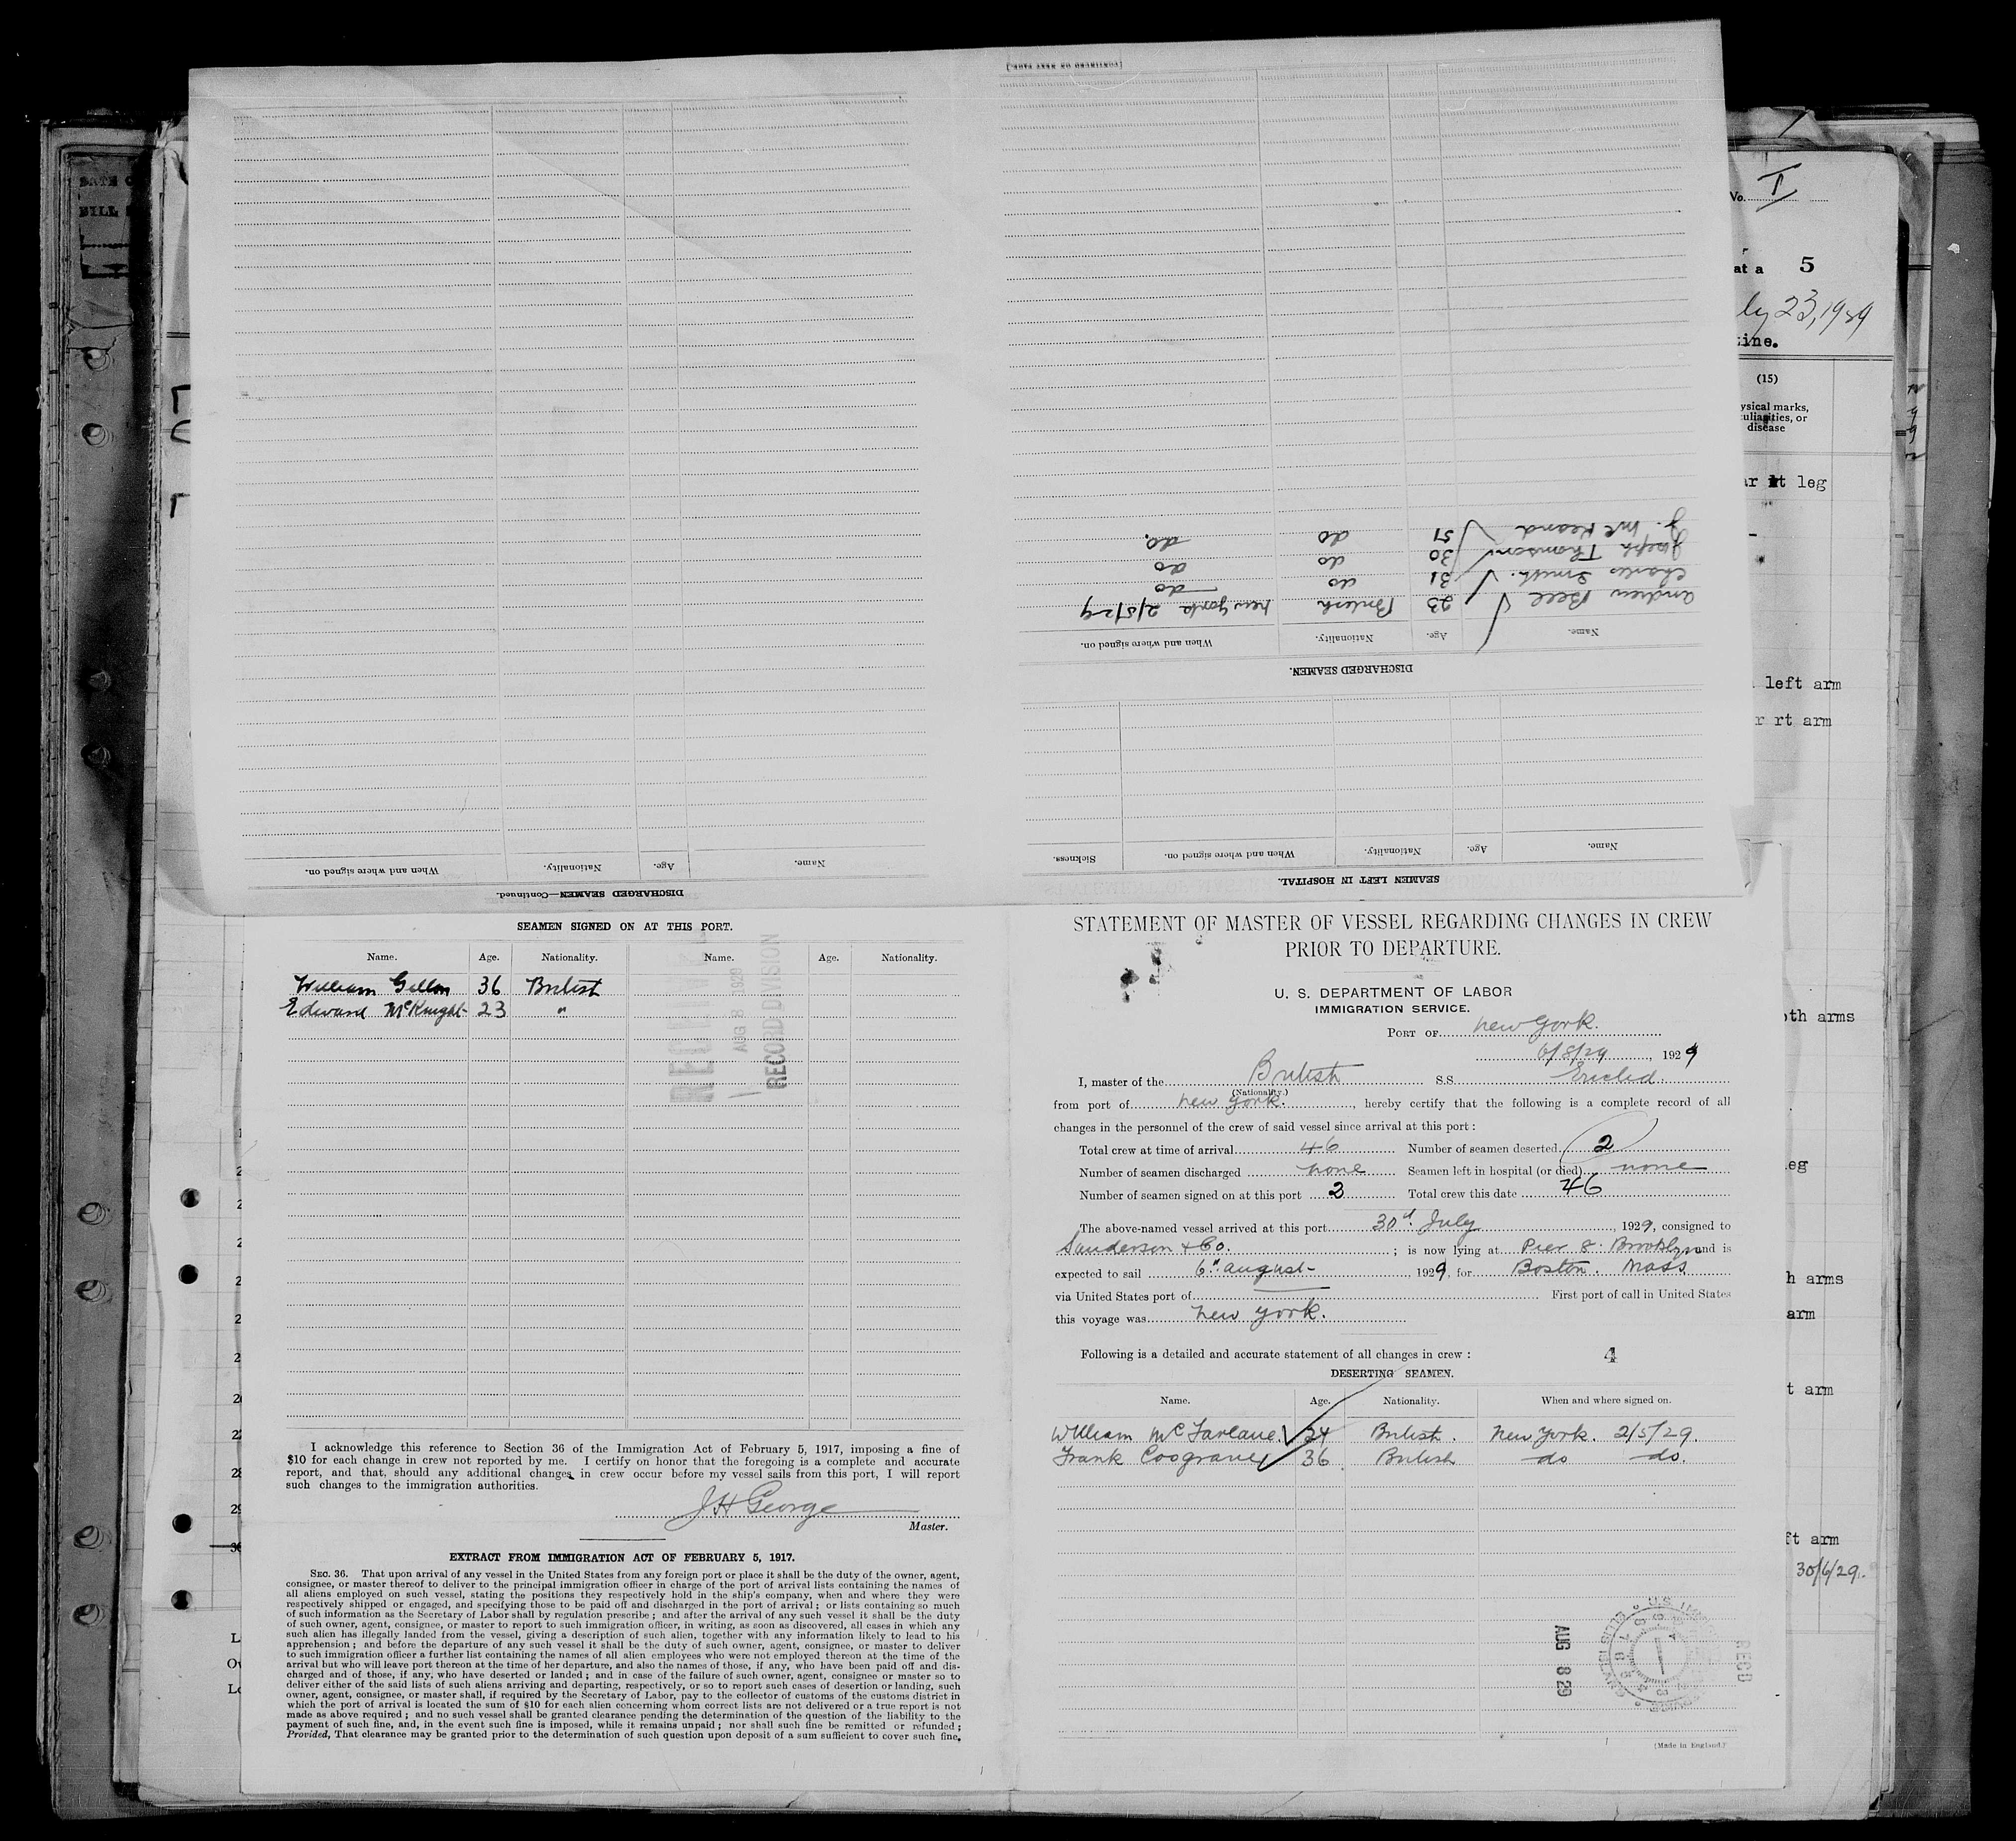 [CONTINUED ON NEXT PAGE.]
DISCHARGED SEAMEN.
Name. Age. Nationality. When and where signed on.
Andrew Bell 23 British New York 2/5/29
Charles Smith. 31 do do
Joseph Thomson 30 do do
J. McKeand 51 do do.
SEAMEN LEFT IN HOSPITAL.
Name. Age. Nationality. When and where signed on. Sickness.
DISCHARGED SEAMEN—Continued.
Name. Age. Nationality. When and where signed on.
DATE O
BILL
No. I
at a 5
ly 23, 1929
tine.
(15)
ysical marks,
uliarities, or
disease
ar lt leg
left arm
r rt arm
oth arms
eg
h arms
arm
t arm
ft arm
30/6/29.
SEAMEN SIGNED ON AT THIS PORT.
Name. Age. Nationality. Name. Age. Nationality.
William Gillon 36 British
Edward McKnight 23 "
AUG 8 1929
RECORD DIVISION
I acknowledge this reference to Section 36 of the Immigration Act of February 5, 1917, imposing a fine of
$10 for each change in crew not reported by me. I certify on honor that the foregoing is a complete and accurate
report, and that, should any additional changes in crew occur before my vessel sails from this port, I will report
such changes to the immigration authorities.
J H George
Master.
EXTRACT FROM IMMIGRATION ACT OF FEBRUARY 5, 1917.
SEC. 36. That upon arrival of any vessel in the United States from any foreign port or place it shall be the duty of the owner, agent,
consignee, or master thereof to deliver to the principal immigration officer in charge of the port of arrival lists containing the names of
all aliens employed on such vessel, stating the positions they respectively hold in the ship's company, when and where they were
respectively shipped or engaged, and specifying those to be paid off and discharged in the port of arrival; or lists containing so much
of such information as the Secretary of Labor shall by regulation prescribe; and after the arrival of any such vessel it shall be the duty
of such owner, agent, consignee, or master to report to such immigration officer, in writing, as soon as discovered, all cases in which any
such alien has illegally landed from the vessel, giving a description of such alien, together with any information likely to lead to his
apprehension; and before the departure of any such vessel it shall be the duty of such owner, agent, consignee, or master to deliver
to such immigration officer a further list containing the names of all alien employees who were not employed thereon at the time of the
arrival but who will leave port thereon at the time of her departure, and also the names of those, if any, who have been paid off and dis-
charged and of those, if any, who have deserted or landed; and in case of the failure of such owner, agent, consignee or master so to
deliver either of the said lists of such aliens arriving and departing, respectively, or so to report such cases of desertion or landing, such
owner, agent, consignee, or master shall, if required by the Secretary of Labor, pay to the collector of customs of the customs district in
which the port of arrival is located the sum of $10 for each alien concerning whom correct lists are not delivered or a true report is not
made as above required; and no such vessel shall be granted clearance pending the determination of the question of the liability to the
payment of such fine, and, in the event such fine is imposed, while it remains unpaid; nor shall such fine be remitted or refunded;
Provided, That clearance may be granted prior to the determination of such question upon deposit of a sum sufficient to cover such fine.
STATEMENT OF MASTER OF VESSEL REGARDING CHANGES IN CREW
PRIOR TO DEPARTURE.
U. S. DEPARTMENT OF LABOR
IMMIGRATION SERVICE.
PORT OF New York.
6/8/29, 1929
I, master of the British S.S. Euclid.
(Nationality.)
from port of New York., hereby certify that the following is a complete record of all
changes in the personnel of the crew of said vessel since arrival at this port:
Total crew at time of arrival 46 Number of seamen deserted 2
Number of seamen discharged none Seamen left in hospital (or died) none
Number of seamen signed on at this port 2 Total crew this date 46
The above-named vessel arrived at this port 30th July, 1929, consigned to
Sanderson & Co.; is now lying at Pier 8. Brooklyn and is
expected to sail 6th August, 1929, for Boston. Mass
via United States port of First port of call in United States
this voyage was New York.
Following is a detailed and accurate statement of all changes in crew: 4
DESERTING SEAMEN.
Name. Age. Nationality. When and where signed on.
William McFarlane. 24 British. New York. 2/5/29.
Frank Coograve 36 British do do.
AUG 8 29
REC'D
(Made in England.)